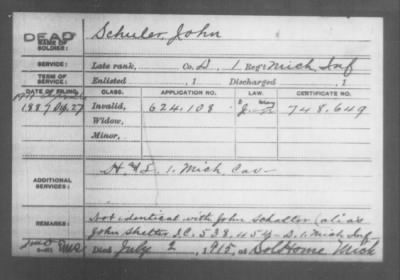 DEAD
NAME OF SOLDIER:
Schuler, John
SERVICE:
Late rank, Co. D. 1 Reg't Mich. Inf
TERM OF SERVICE:
Enlisted , 1 Discharged , 1
DATE OF FILING. CLASS. APPLICATION NO. LAW. CERTIFICATE NO.
1887 27 Invalid, 624.108 748.649
Widow,
Minor,
ADDITIONAL SERVICES:
H. 1. Mich. Cav
REMARKS:
Not identical with John Schelter (alias
John Shelter I.C. 538.454 - D. 1. Mich. Inf
Died July 2, 1915, at Sol Home Mich